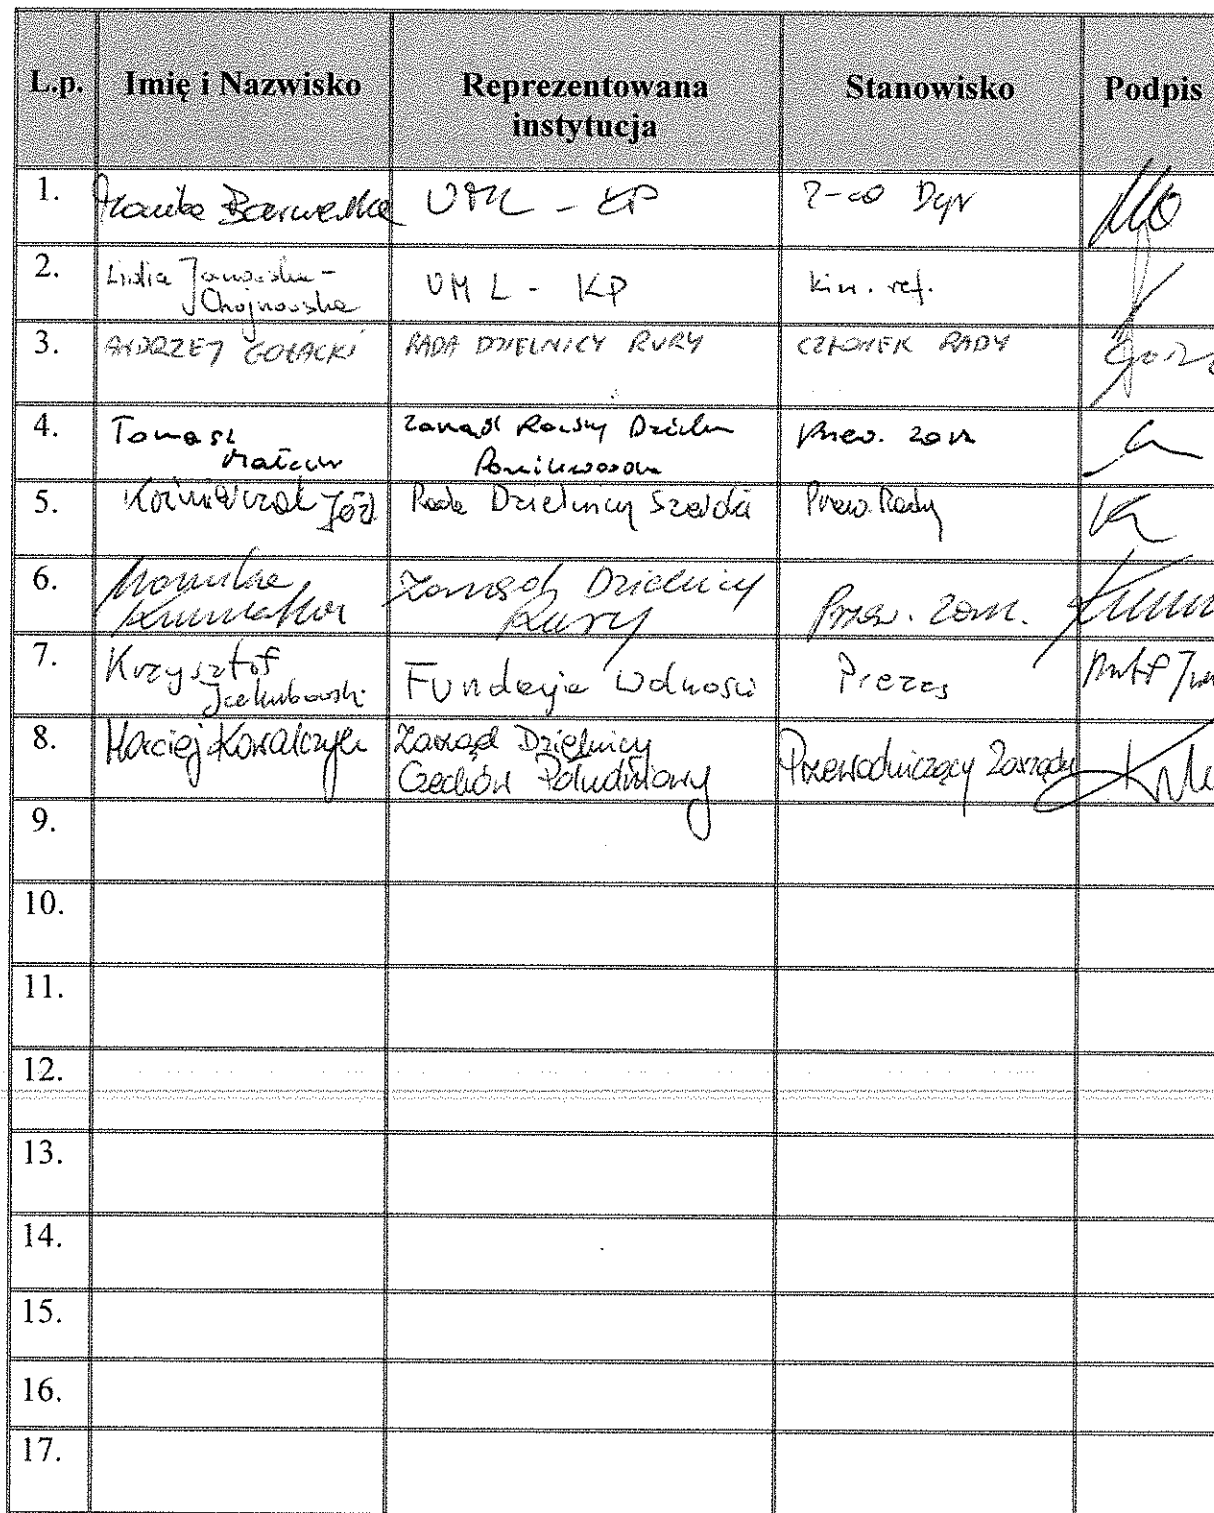 L.p. Imię i Nazwisko Reprezentowana instytucja Stanowisko Podpis
1. UML - KP Z-ca Dyr
2. Lidia
Chojnowska UML - KP Kier. ref.
3. ANDRZEJ GOŁACKI RADA DZIELNICY RURY CZŁONEK RADY
4. Tomasz Zarząd Rady Dzieln Przew. Zarz
Ponikwoda
5. Koźmińczuk Józ. Rada Dzielnicy Szerokie Przew. Rady
6. Zarząd Dzielnicy
Rury Przew. Zarz.
7. Krzysztof
Jakubowski Fundacja Wolności Prezes
8. Maciej Kowalczyk Zarząd Dzielnicy
Czechów Południowy Przewodniczący Zarządu
9.
10.
11.
12.
13.
14.
15.
16.
17.